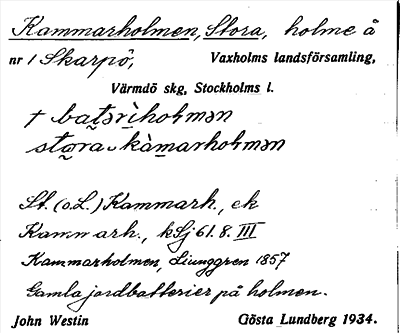 Kammarholmen, Stora, holme å
nr 1 Skarpö, Vaxholms landsförsamling,
Värmdö skg, Stockholms l.
† batəriholmən
stora kàmarholmən
St. (o. L.) Kammarh., ek
Kammarh., kSj 61. 8. III
Kammarholmen, Ljunggren 1857
Gamla jordbatterier på holmen.
John Westin Gösta Lundberg 1934.